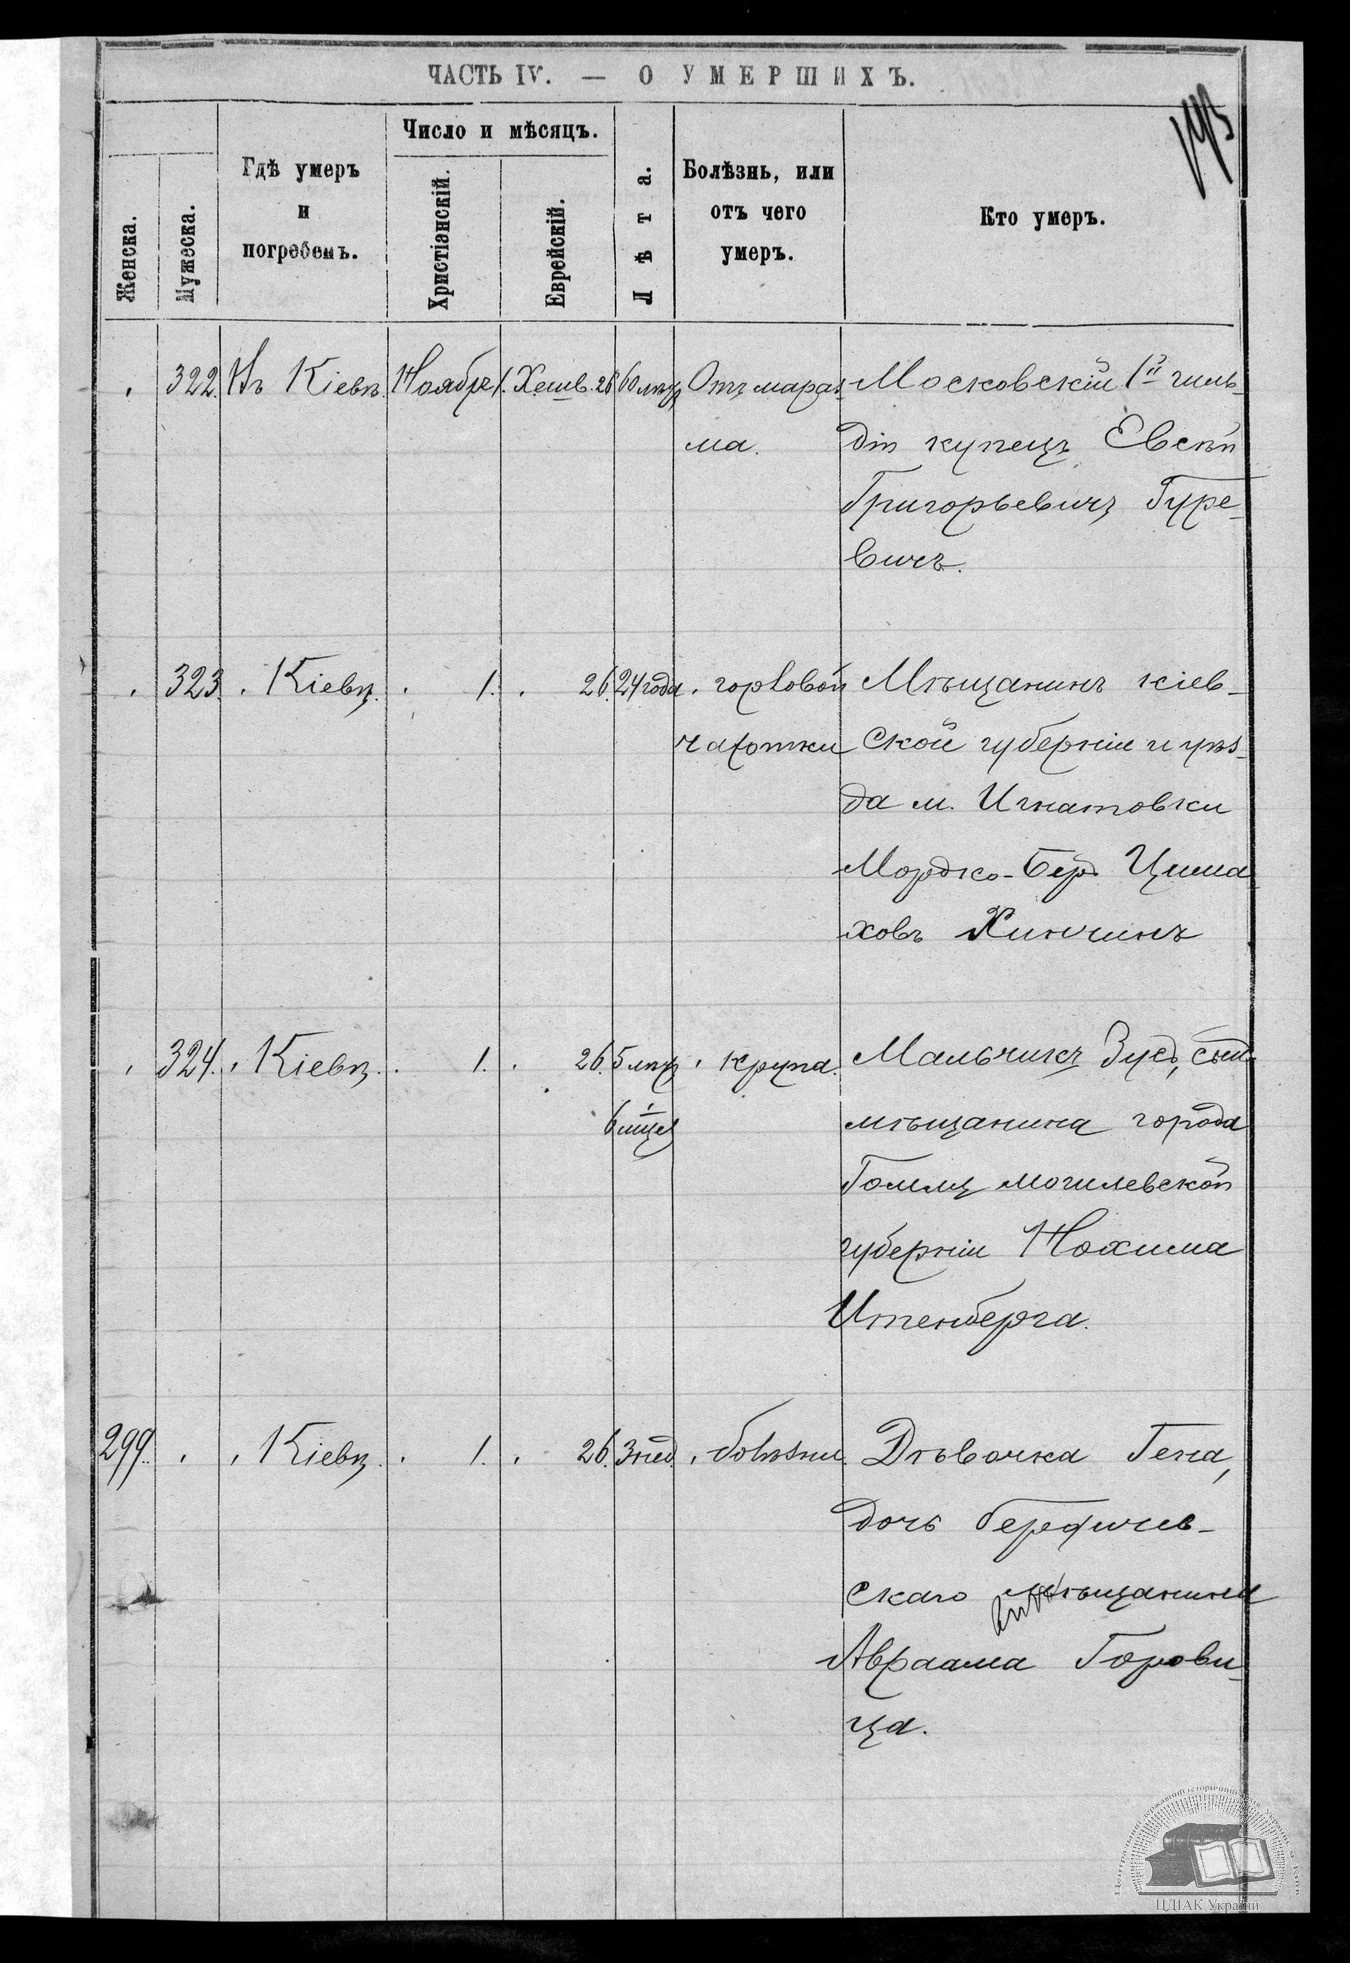 ЧАСТЬ IV. — О УМЕРШИХЪ.
Женска.
Мужеска.
Гдѣ умеръ
и
погребенъ.
Число и мѣсяцъ.
Христіэнскій.
Еврейскій.
Лѣта.
Болѣзнь, или
отъ чего
умеръ.
Кто умеръ.
322. Въ Кіевѣ. Ноября 1. Хешв. 26 60 лѣтъ Отъ мараз- Московскій 1й гиль-
ма. діи купецъ Евсѣй
Григорьевичъ Гуре-
вичъ.
323. Кіевѣ. 1. 26. 24 года горловой Мѣщанинъ кіев-
чахотки ской губерніи и уѣз-
да м. Игнатовки
Мордко-Беръ Цима-
ховъ Хинчинъ
324. Кіевѣ. 1. 26. 5 лѣтъ крупа. Мальчикъ Зусь, сынъ
6 мѣсяц мѣщанина города
Гомля могилевской
губерніи Нохима
Итенберга.
299. Кіевѣ. 1. 26. 3 нед. болѣзни. Дѣвочка Гена,
дочь бердичев-
скаго мѣщанина
Авраама Горови-
ца.
Центральний державний історичний архів України, м. Київ
ЦДІАК України